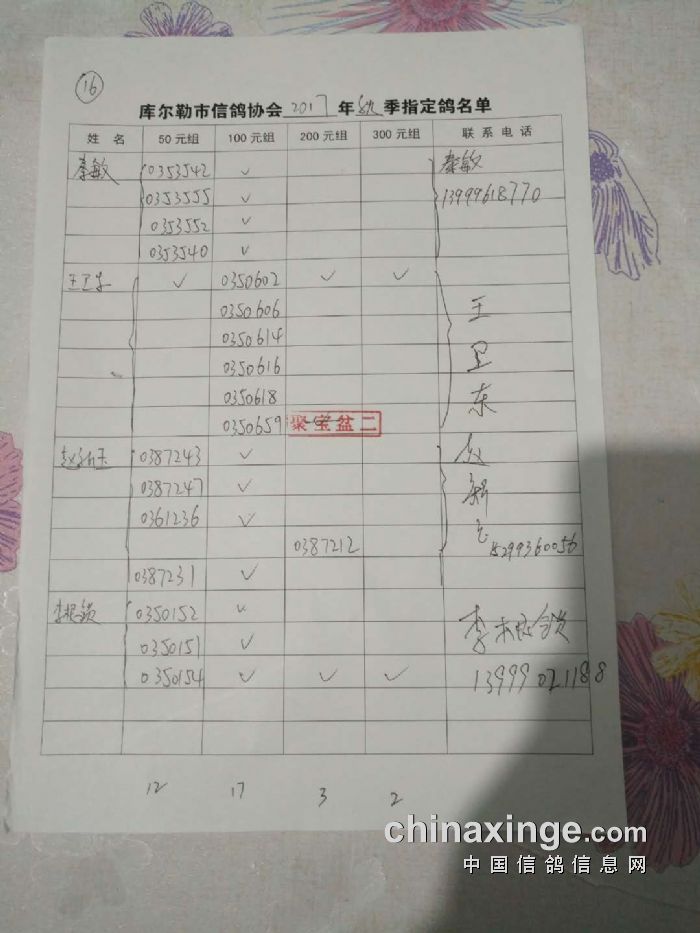 16
库尔勒市信鸽协会 2017 年 秋 季指定鸽名单
姓 名 50元组 100元组 200元组 300元组 联系电话
秦敏 0353542 ✓ 秦敏
0353555 ✓ 13999618770
0353552 ✓
0353540 ✓
王卫东 ✓ 0350602 ✓ ✓
0350606 王
0350614
0350616 卫
0350618 东
0350659 聚宝盆二
0387243 ✓ 赵
0387247 ✓ 新
0361236 ✓
0387212 15299360056
0387231 ✓
李根锁 0350152 ✓ 李根锁
0350151 ✓
0350154 ✓ ✓ ✓ 13999021188
12 17 3 2
chinaxinge.com
中国信鸽信息网